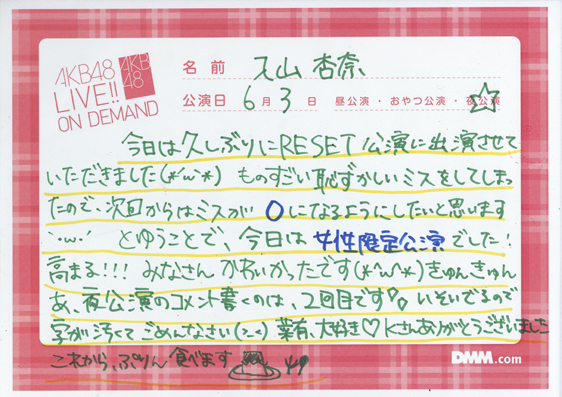 AKB48
LIVE!!
ON DEMAND
AKB
48
名前 入山 杏奈
公演日 6月3日 昼公演・おやつ公演・夜公演
今日は久しぶりにRESET公演に出演させて
いただきました(*´ω`*) ものすごい恥ずかしいミスをしてしまっ
たので、次回からはミスが0になるようにしたいと思います
´・ω・` とゆうことで、今日は女性限定公演でした!
高まる!!! みなさんかわいかったです(*^ω^*)きゅんきゅん
あ、夜公演のコメント書くのは、2回目です いそいでるので
字が汚くてごめんなさい(>_<) 大好き♡Kさんありがとうございました
これから、ぷりん食べます
DMM.com